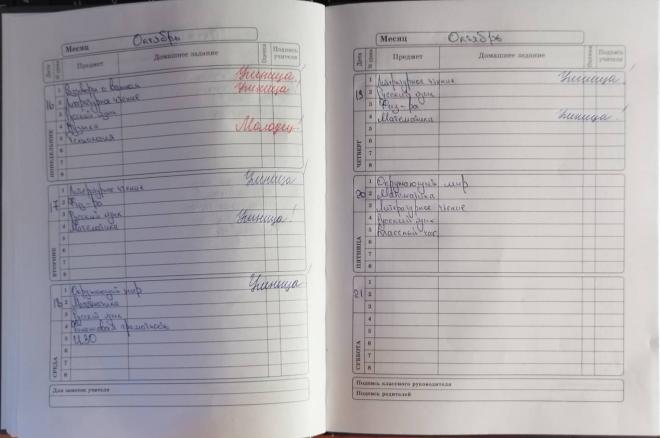 Месяц Октябрь
Дата № урока Предмет Домашнее задание Оценка Подпись учителя
ПОНЕДЕЛЬНИК 16
1 Разговоры о важном Умница!
2 Литературное чтение Умница
3 Русский язык
4 Музыка Молодец!
5 Технология
6
7
8
ВТОРНИК 17
1 Литературное чтение Умница!
2 Физ-ра
3 Русский язык Умница!
4 Математика
5
6
7
8
СРЕДА 18
1 Окружающий мир Умница!
2 Математика
3 Русский язык
4 грамотность
5 ИЗО
6
7
8
Для заметок учителя
Месяц Октябрь
Дата № урока Предмет Домашнее задание Оценка Подпись учителя
ЧЕТВЕРГ 19
1 Литературное чтение Умница!
2 Русский язык
3 Физ-ра
4 Математика Умница!
5
6
7
8
ПЯТНИЦА 20
1 Окружающий мир
2 Математика
3 Литературное чтение
4 Русский язык
5 Классный час
6
7
8
СУББОТА 21
1
2
3
4
5
6
7
8
Подпись классного руководителя
Подпись родителей